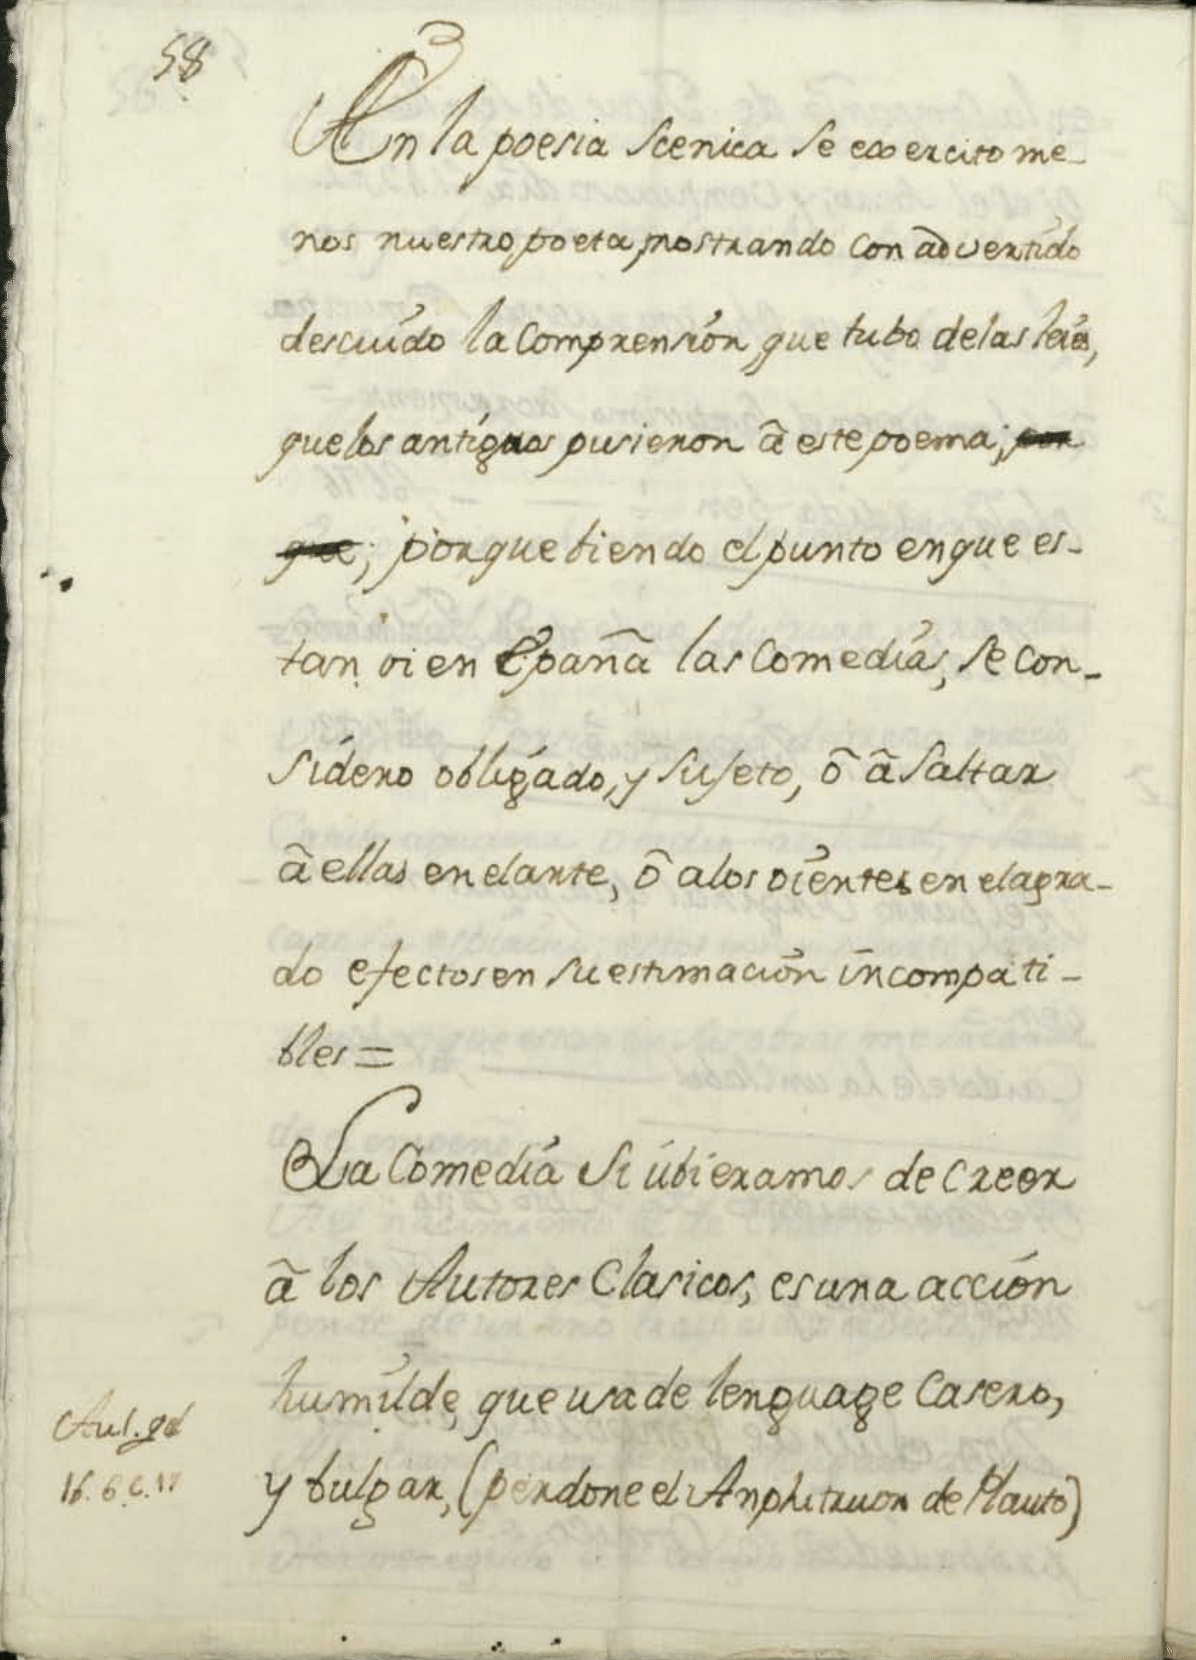 58
En la poesia Scenica se exercito me-
nos nuestro poeta, mostrando con advertido
descuido la Comprensión que tubo delas leies,
quelos antiguos pusieron â este poema; por
que; porque biendo el punto enque es-
tan oi en España las Comedias, se con-
sidero obligado, y sujeto, ô â saltar
â ellas en el arte, ô alos oientes en el agra-
do efectos en su estimación incompati-
bles =
La Comedia si ubieramos de creer
â los Autores Clasicos, es una acción
humilde, que usa de lenguage Casero,
Aul. gel
lib. 6 c. 17
y bulgar, (perdone el Anphitruon de Plauto)